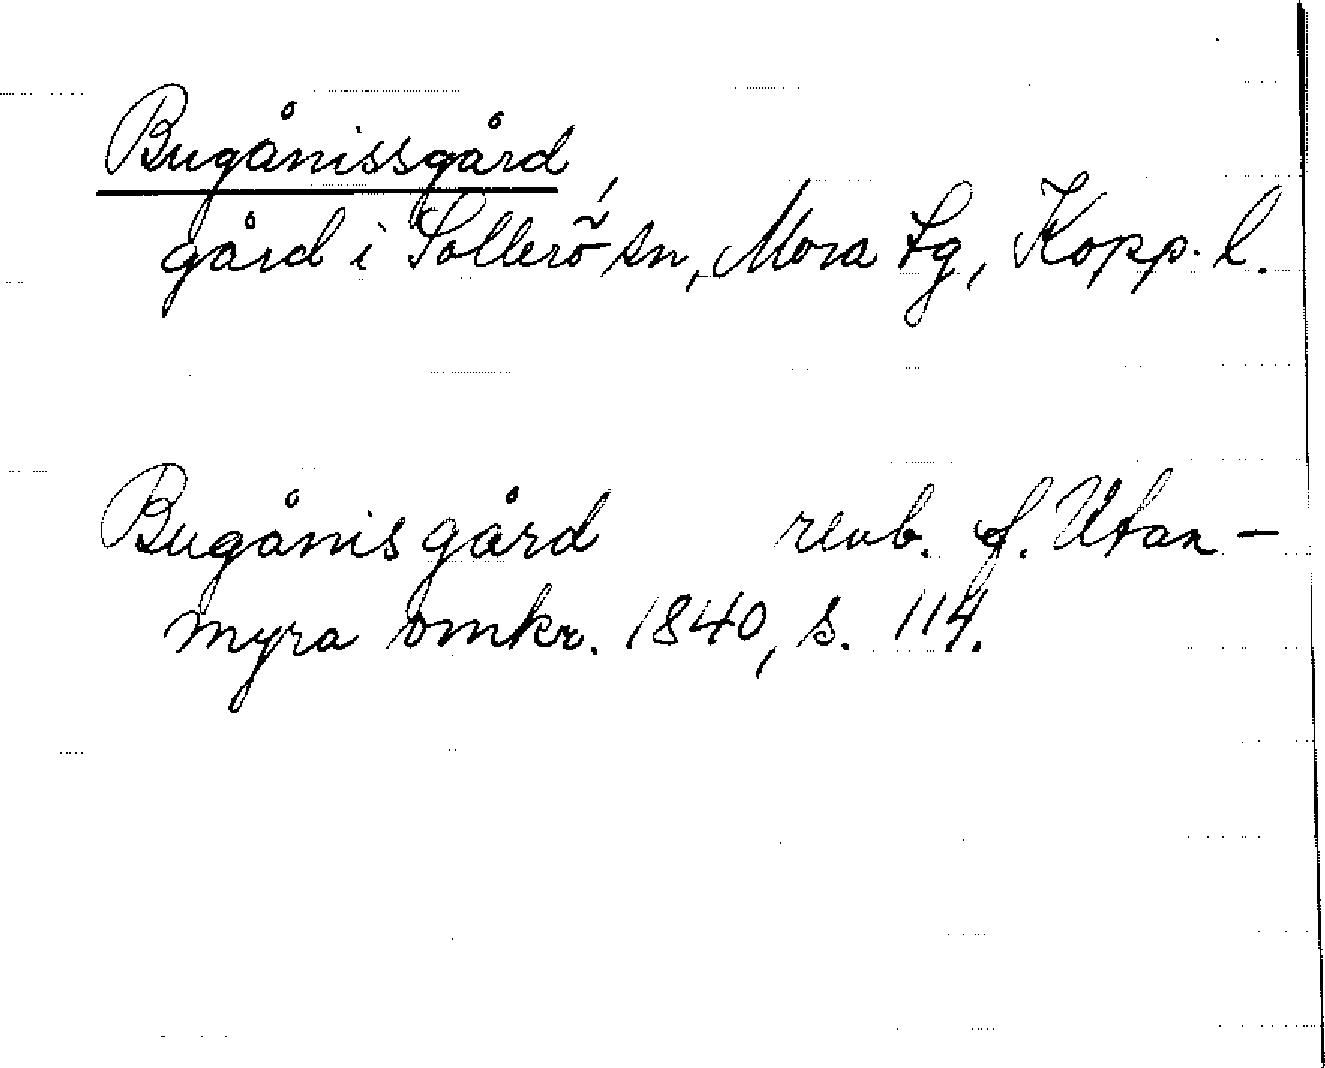 Bugånissgård
gård i Sollerö sn, Mora tg, Kopp. l.
Bugånis gård renb. f. Utan-
myra omkr. 1840, s. 114.